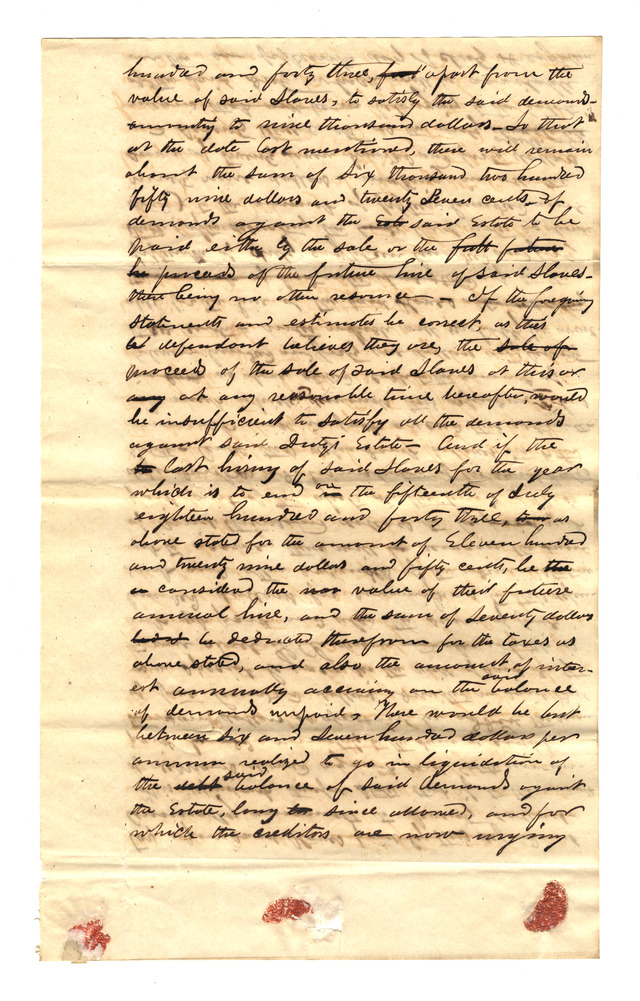 hundred and forty three, apart from the
value of said Slaves, to satisfy the said demands
amounting to nine thousand dollars – So that
at the date last mentioned, there will remain
about the sum of Six thousand two hundred
fifty nine dollars and twenty Seven cents of
demands against the said Estate to be
paid either by the sale or the
proceeds of the future hire of said Slaves –
there being no other resource – If the foregoing
Statements and estimates be correct, as this
defendant believes they are, the sale of
proceeds of the sale of said Slaves at this or
any at any reasonable time hereafter, would
be insufficient to satisfy all the demands
against said Estate – And if the
last hiring of said Slaves for the year
which is to end on the fifteenth of July
eighteen hundred and forty three, as
above stated for the amount of Eleven hundred
and twenty nine dollars and fifty cents, be the
considered the value of their future
annual hire, and the sum of Seventy dollars
be deducted therefrom for the taxes as
above stated, and also the amount of inter-
est annually accruing on the said balance
of demands unpaid, There would be but
between Six and Seven hundred dollars per
annum realized to go in liquidation of
the debt said balance of said demands against
the Estate, long since allowed, and for
which the creditors are now urging